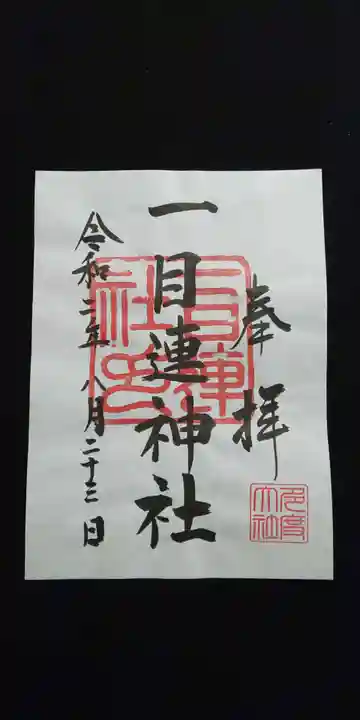 奉拝
一目連神社
令和二年八月二十三日
多度大社